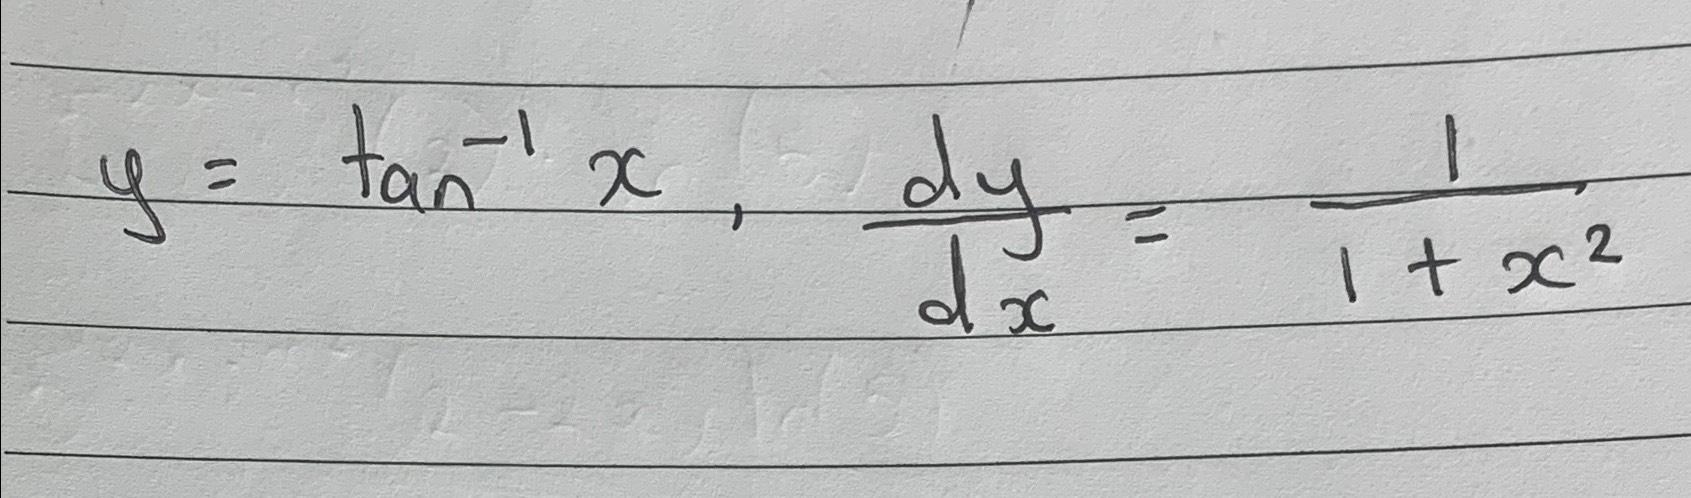 y = tan⁻¹ x, dy/dx = 1/(1 + x²)